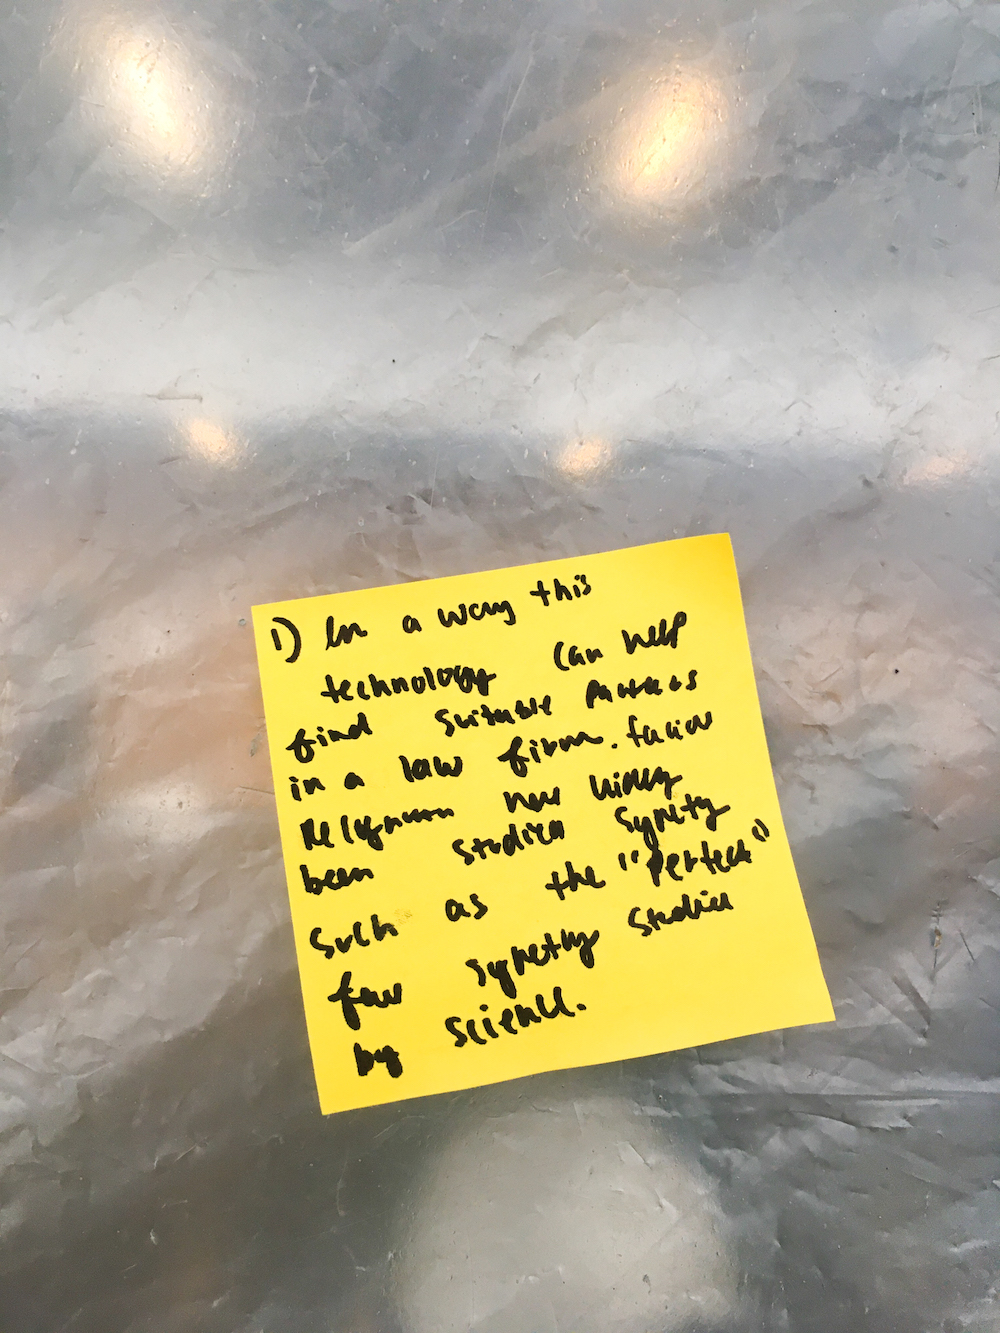 1) In a way this
technology can help
find suitable
in a law firm. facial
now widely
been studied symetry
such as the "perfect"
face symetry studied
by science.